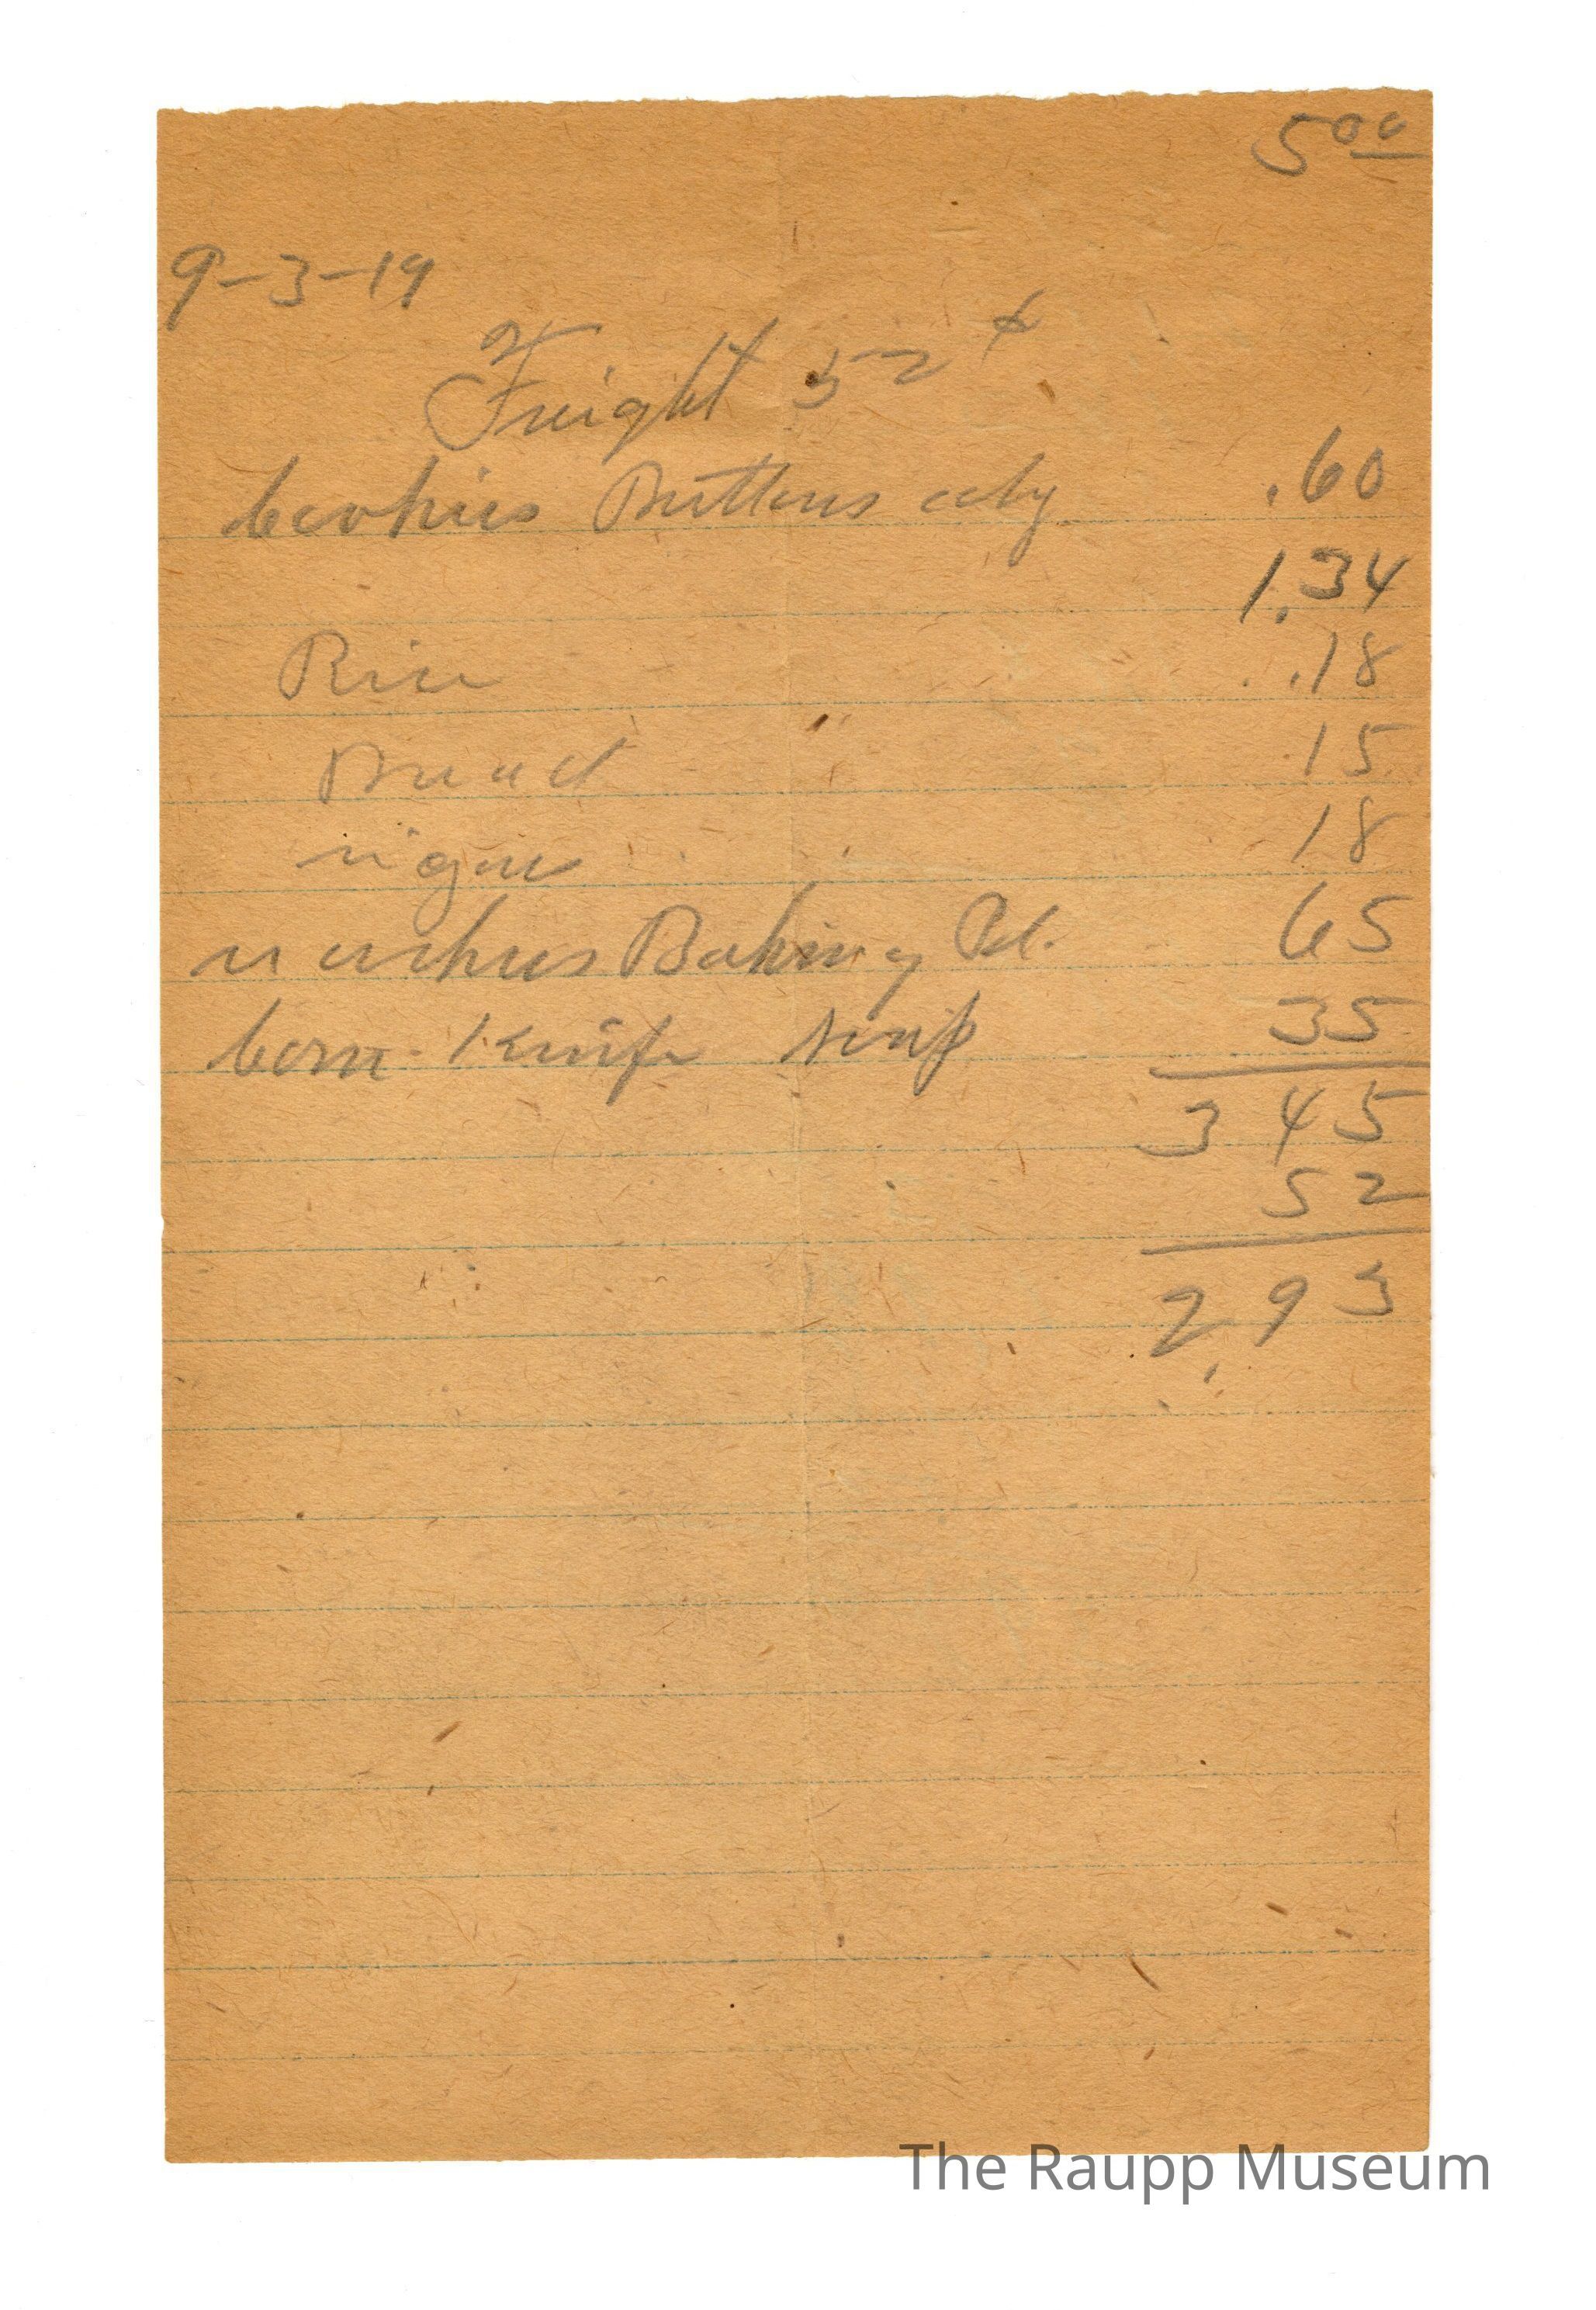 5 00
9-3-19
Freight 52 ¢
Cookies Buttons .60
1.34
Rice .18
Bread 15
18
Baking Pd. 65
Corn Knife Soap 35
3 45
52
2.93
The Raupp Museum